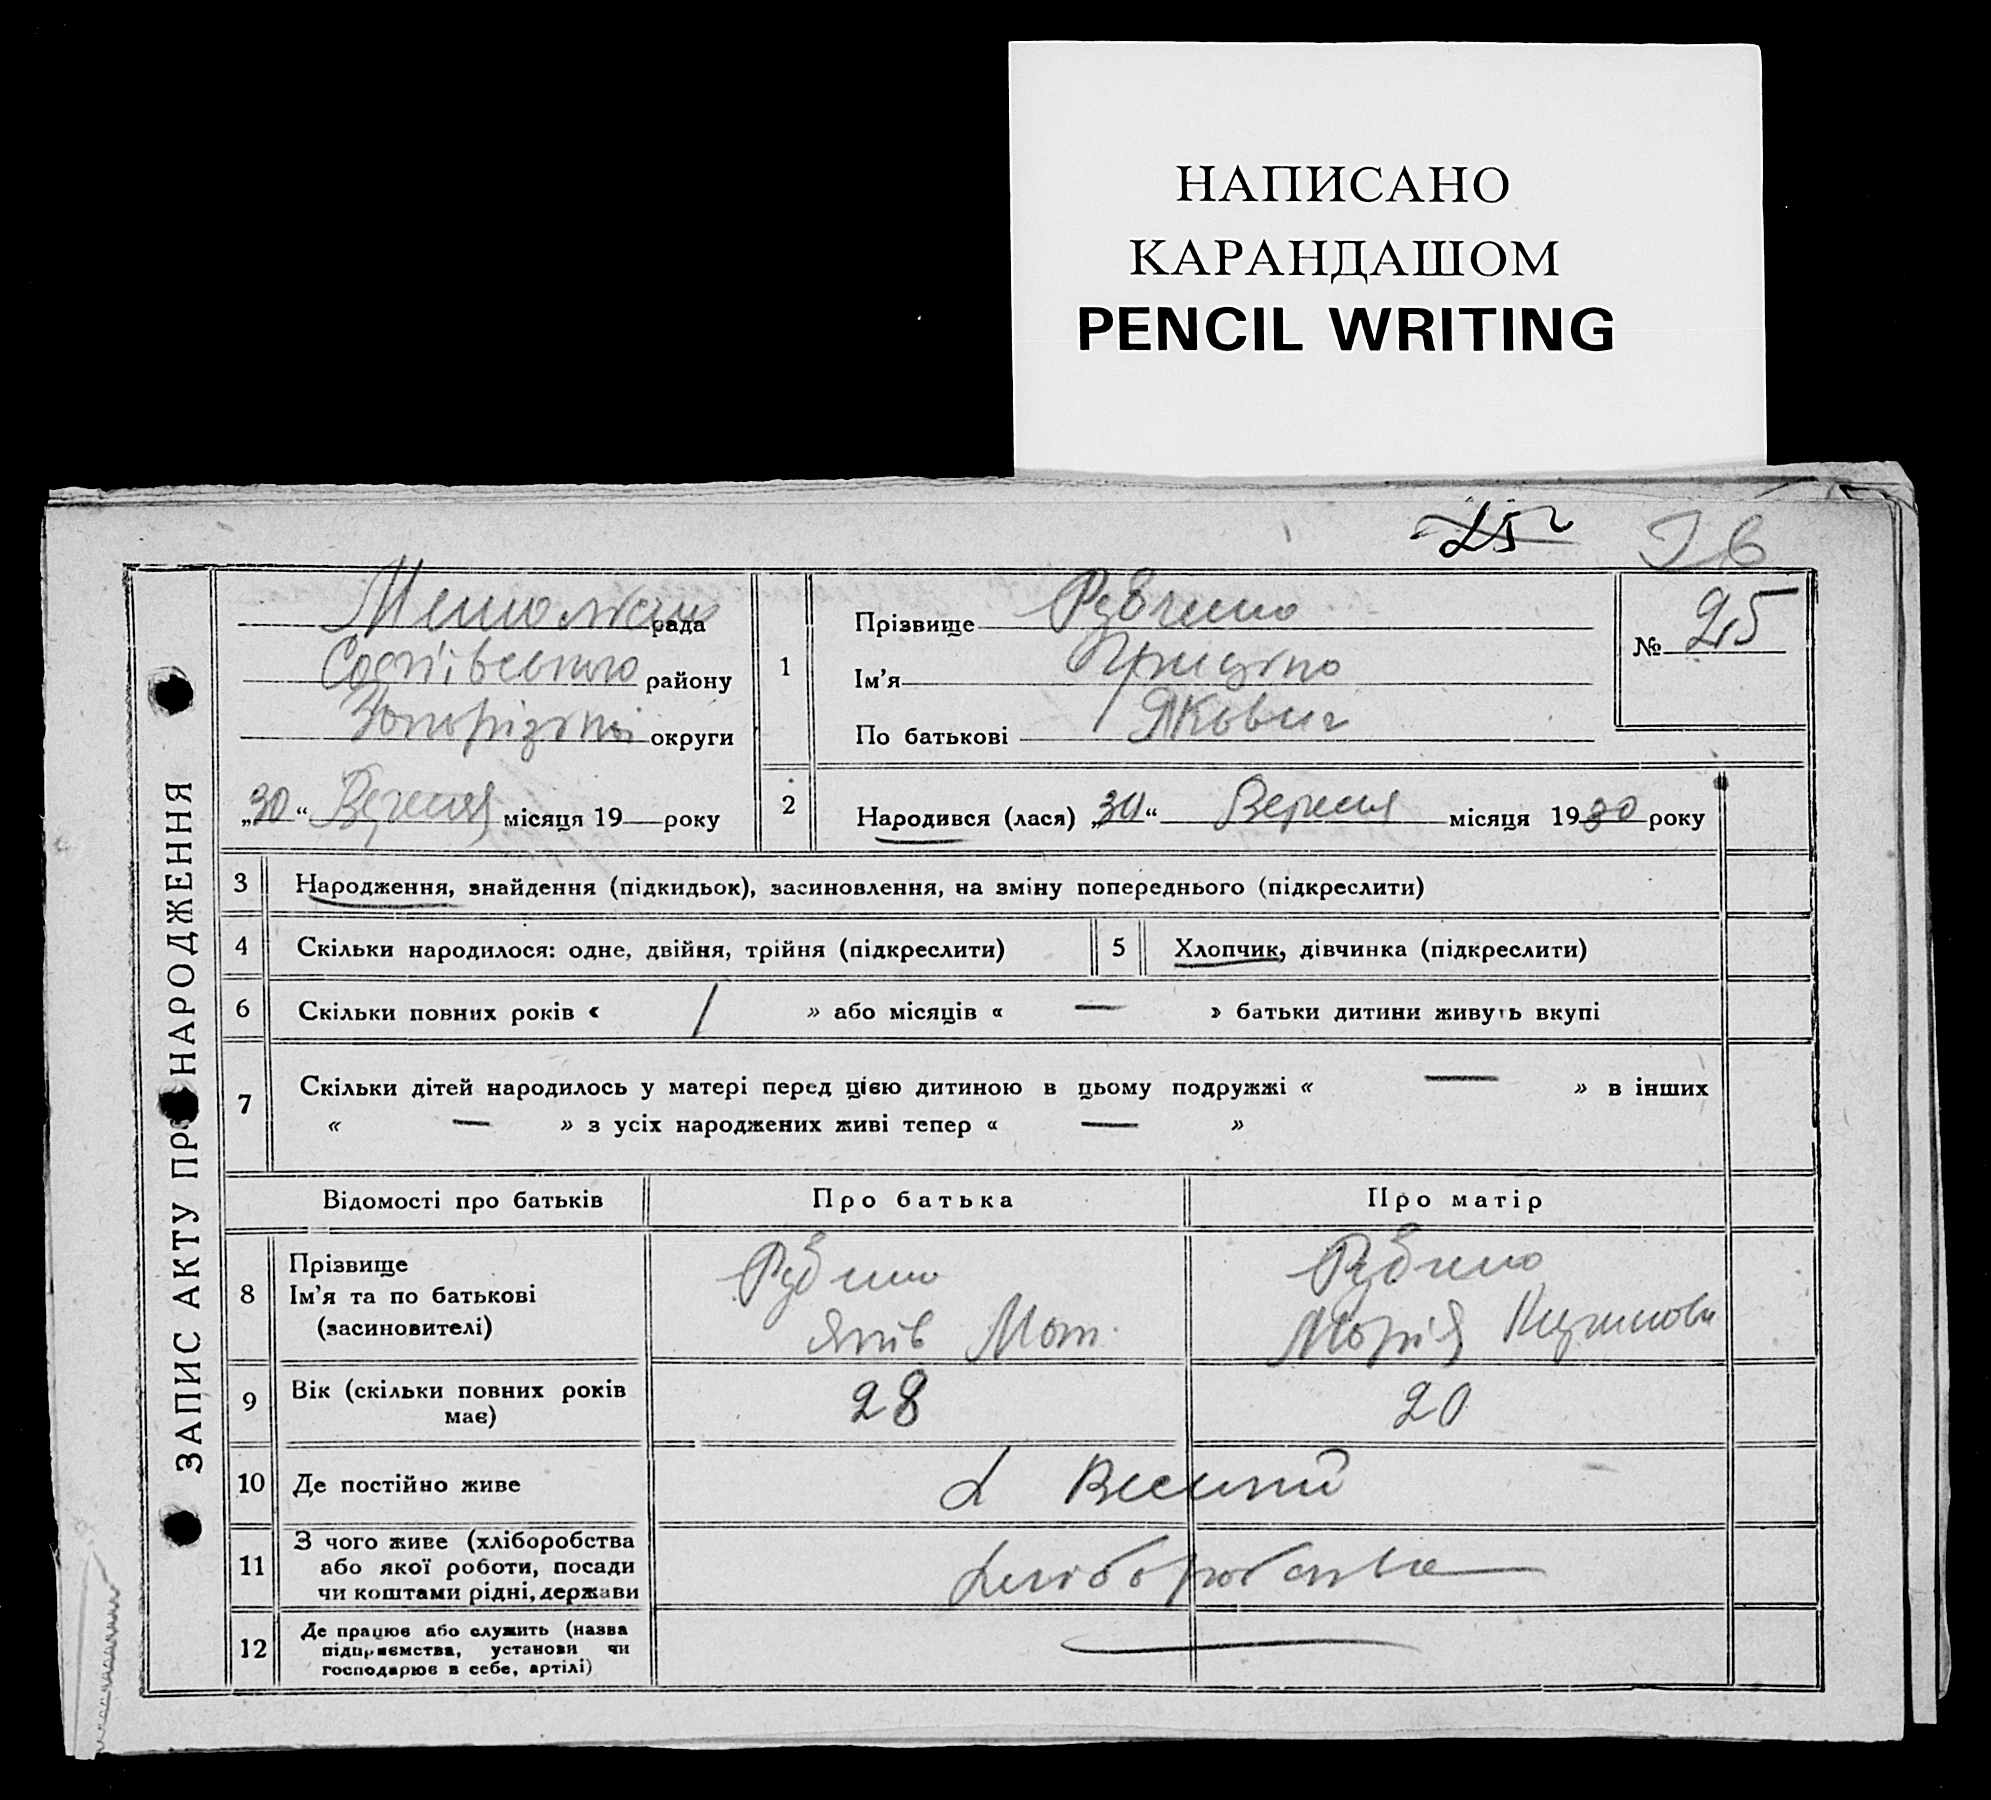 НАПИСАНО
КАРАНДАШОМ
PENCIL WRITING
25 26
ЗАПИС АКТУ ПРО НАРОДЖЕННЯ
рада
Софіївського району
округи
„30“ місяця 19 року
1
Прізвище
Ім’я Грицько
По батькові Якович
№ 25
2
Народився (лася) „30“ Вересня місяця 1930 року
3 Народження, знайдення (підкидьок), засиновлення, на зміну попереднього (підкреслити)
4 Скільки народилося: одне, двійня, трійня (підкреслити)
5 Хлопчик, дівчинка (підкреслити)
6 Скільки повних років « / » або місяців « — » батьки дитини живуть вкупі
7 Скільки дітей народилось у матері перед цією дитиною в цьому подружжі « — » в інших
« — » з усіх народжених живі тепер « — »
Відомості про батьків Про батька Про матір
8 Прізвище
Ім’я та по батькові
(засиновителі)
Яків Мат. Марія
9 Вік (скільки повних років
має)
28 20
10 Де постійно живе
11 З чого живе (хліборобства
або якої роботи, посади
чи коштами рідні, держави
Хліборобства
12 Де працює або служить (назва
підприємства, установи чи
господарює в себе, артілі)